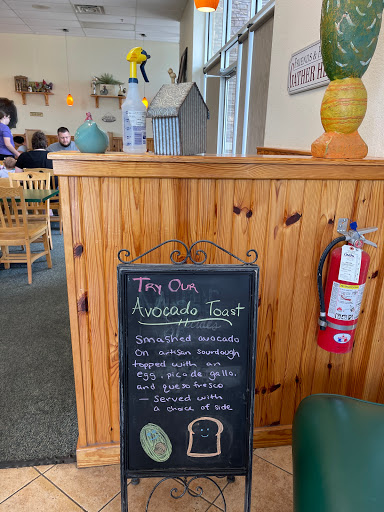 FRIENDS &
GATHER HE
TRY OUR
AVOCADO TOAST
Smashed avocado
On artisan sourdough
topped with an
egg, pico de gallo,
and queso fresco
— Served with
a choice of side